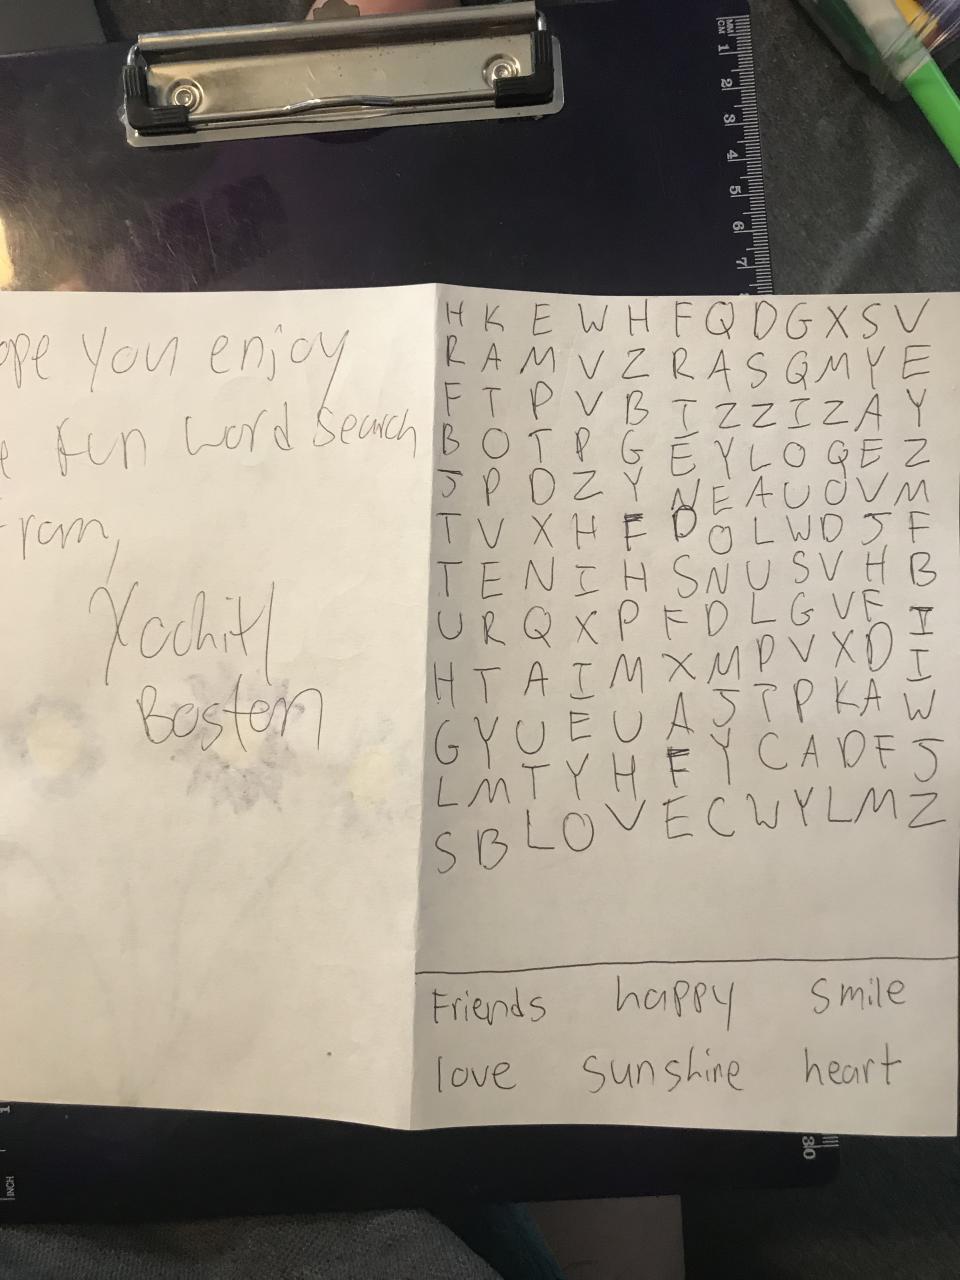 MM
CM 1 2 3 4 5 6 7
ope You enjoy
e fun word Search
From,
Xochitl
Boston
H K E W H F Q D G X S V
R A M V Z R A S Q M Y E
F T P V B I Z Z I Z A Y
B O T P G E Y L O Q E Z
J P D Z Y N E A U O V M
T V X H F D O L W D J F
T E N I H S N U S V H B
U R Q X P F D L G V F I
H T A I M X M P V X D I
G Y U E U A J T P K A W
L M T Y H F Y C A D F J
S B L O V E C W Y L M Z
Friends happy Smile
love sunshine heart
30
1
INCH